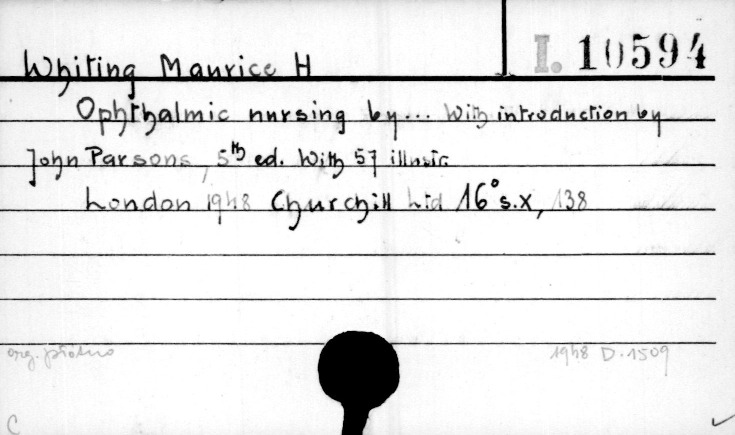 I. 10594
Whiting Maurice H
Ophthalmic nursing by... With introduction by
John Parsons, 5th ed. With 57 illustr.
London 1948 Churchill Ltd 16° s. X, 138
1948 D. 1509
C